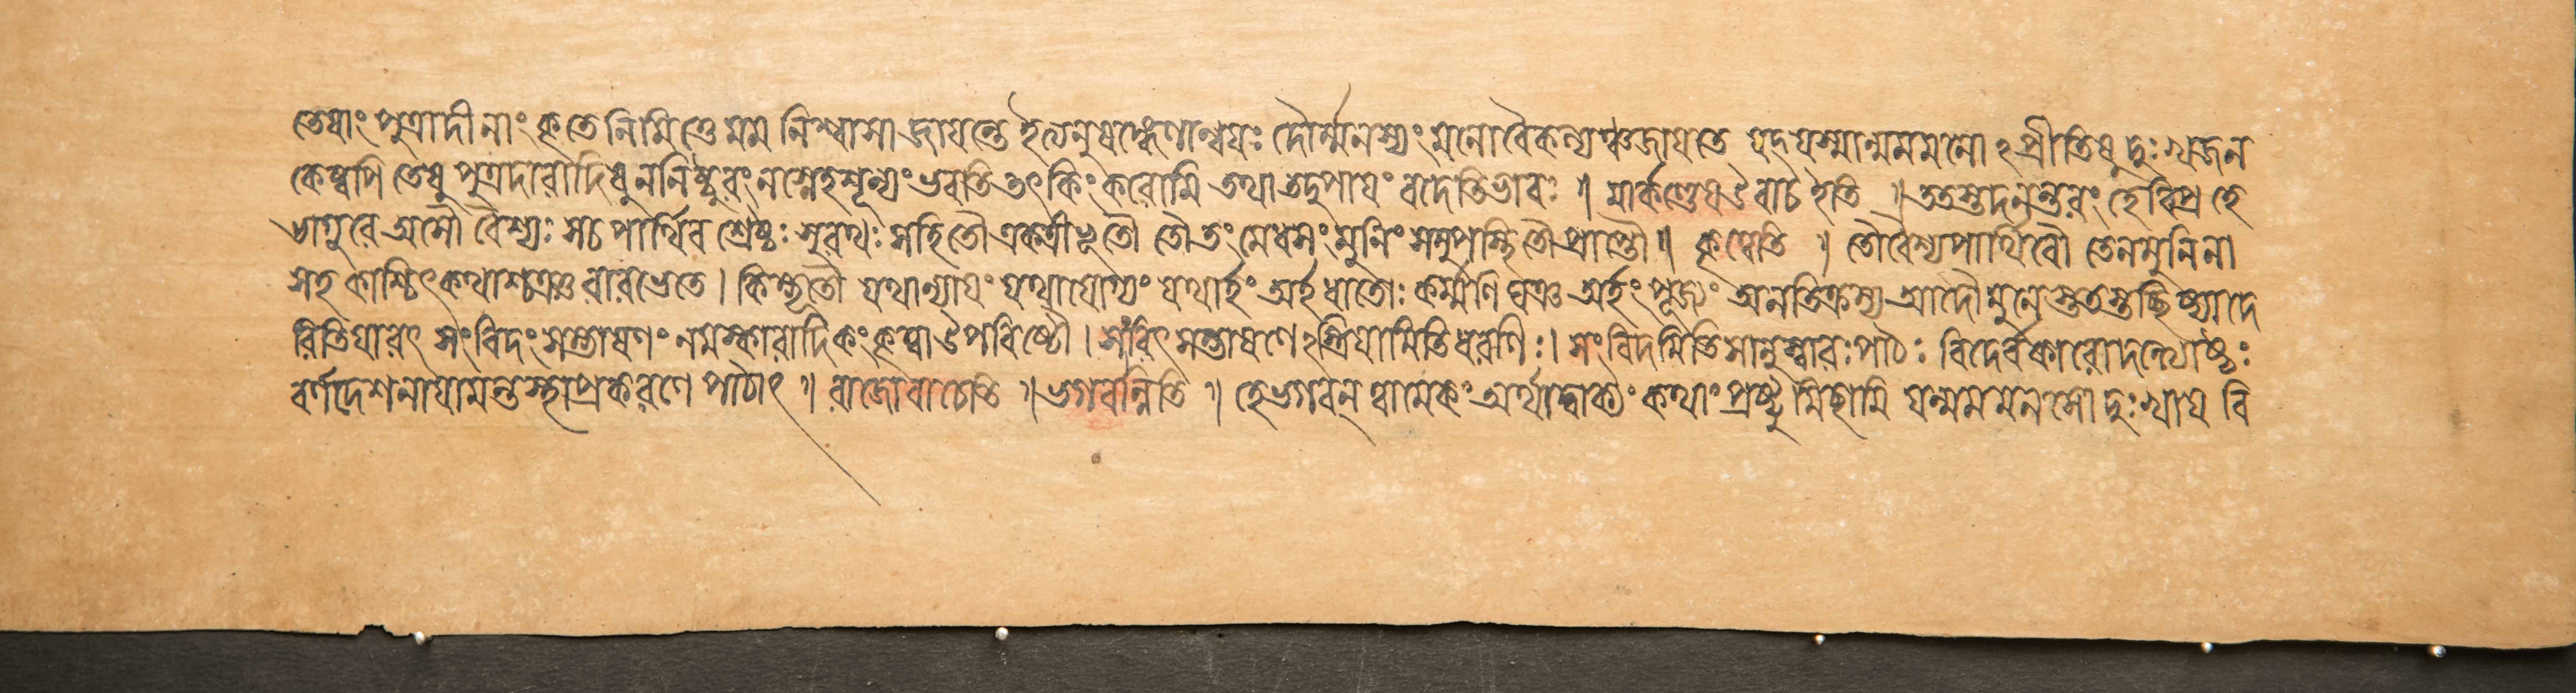 তেষাং পুত্রাদীনাং কৃতে নিমিত্তে মম নিশ্বাসা জায়ন্তে ইত্যনুষঙ্গেণান্বয়ঃ দৌর্ম্মনস্যং মনোবৈকল্যঞ্চ জায়তে যদ যস্মান্মম মনোঽপ্রীতিষু দুঃখজন
কেষ্বপি তেষু পুত্রদারাদিষু ন নিষ্ঠুরং ন স্নেহশূন্যং ভবতি তৎ কিং করোমি তথা তদুপায়ং বদেতি ভাবঃ ॥ মার্কণ্ডেয় উবাচ ইতি ॥ ততস্তদনন্তরং হে বিপ্র হে
ভাগুরে অসৌ বৈশ্যঃ স চ পার্থিব শ্রেষ্ঠঃ সুরথঃ সহিতৌ একত্রীভূতৌ তৌ তং মেধসং মুনিং সমুপাস্থিতৌ প্রাপ্তৌ ॥ কৃত্বেতি ॥ তৌ বৈশ্যপার্থিবৌ তেন মুনিনা
সহ কাশ্চিৎ কথাশ্চক্রতু রারভেতে । কিম্ভূতৌ যথান্যায়ং যথাযোগ্যং যথার্হং অর্হ ধাতোঃ কর্ম্মণি ঘঞ অর্হং পূজ্যং অনতিক্রম্য আদৌ মুনেস্ততস্তচ্ছিষ্যাদে
রিতি যাবৎ সংবিদং সম্ভাষণং নমস্কারাদিকং কৃত্বা উপবিষ্টৌ । সংবিৎ সম্ভাষণেঽস্ত্রিয়ামিতি ধরণিঃ । সংবিদমিতি সানুস্বারঃ পাঠঃ বিদের্বকারো দন্ত্যোষ্ঠঃ
বর্ণদেশনায়ামন্তস্থাপ্রকরণে পাঠাৎ ॥ রাজোবাচেতি ॥ ভগবন্নিতি ॥ হে ভগবন্ ত্বামেকং অর্থাদ্বাক্যং কথাং প্রষ্টুমিচ্ছামি যন্মম মনসো দুঃখায় বি